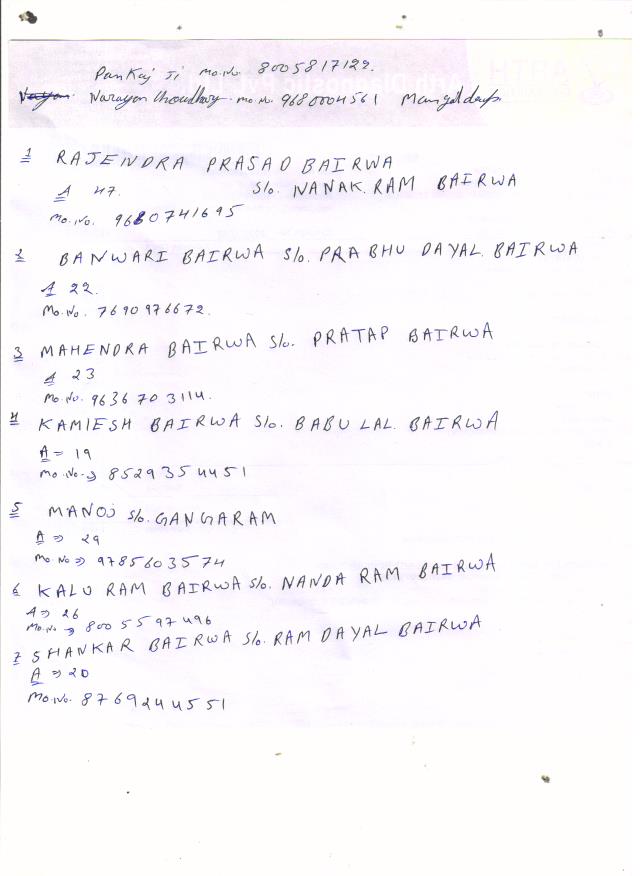 Pankaj Ji mo. No. 8005817122.
Narayan Choudhary. mo. No. 9680004561
1 RAJENDRA PRASAD BAIRWA
A 47. S/o. NANAK. RAM BAIRWA
Mo. No. 9680741695
2 BANWARI BAIRWA S/o. PRABHU DAYAL. BAIRWA
A 22.
Mo. No. 7690976672.
3 MAHENDRA BAIRWA S/o. PRATAP BAIRWA
A 23
Mo. No. 9636703114.
4 KAMLESH BAIRWA S/o. BABU LAL. BAIRWA
A = 19
Mo. No. → 8529354451
5 MANOJ S/o. GANGARAM
A ⇒ 29
Mo. No ⇒ 9785603574
6 KALU RAM BAIRWA S/o. NANDA RAM BAIRWA
A ⇒ 26
Mo. No → 8005597496
7 SHANKAR BAIRWA S/o. RAM DAYAL BAIRWA
A ⇒ 20
Mo. No. 8769244551